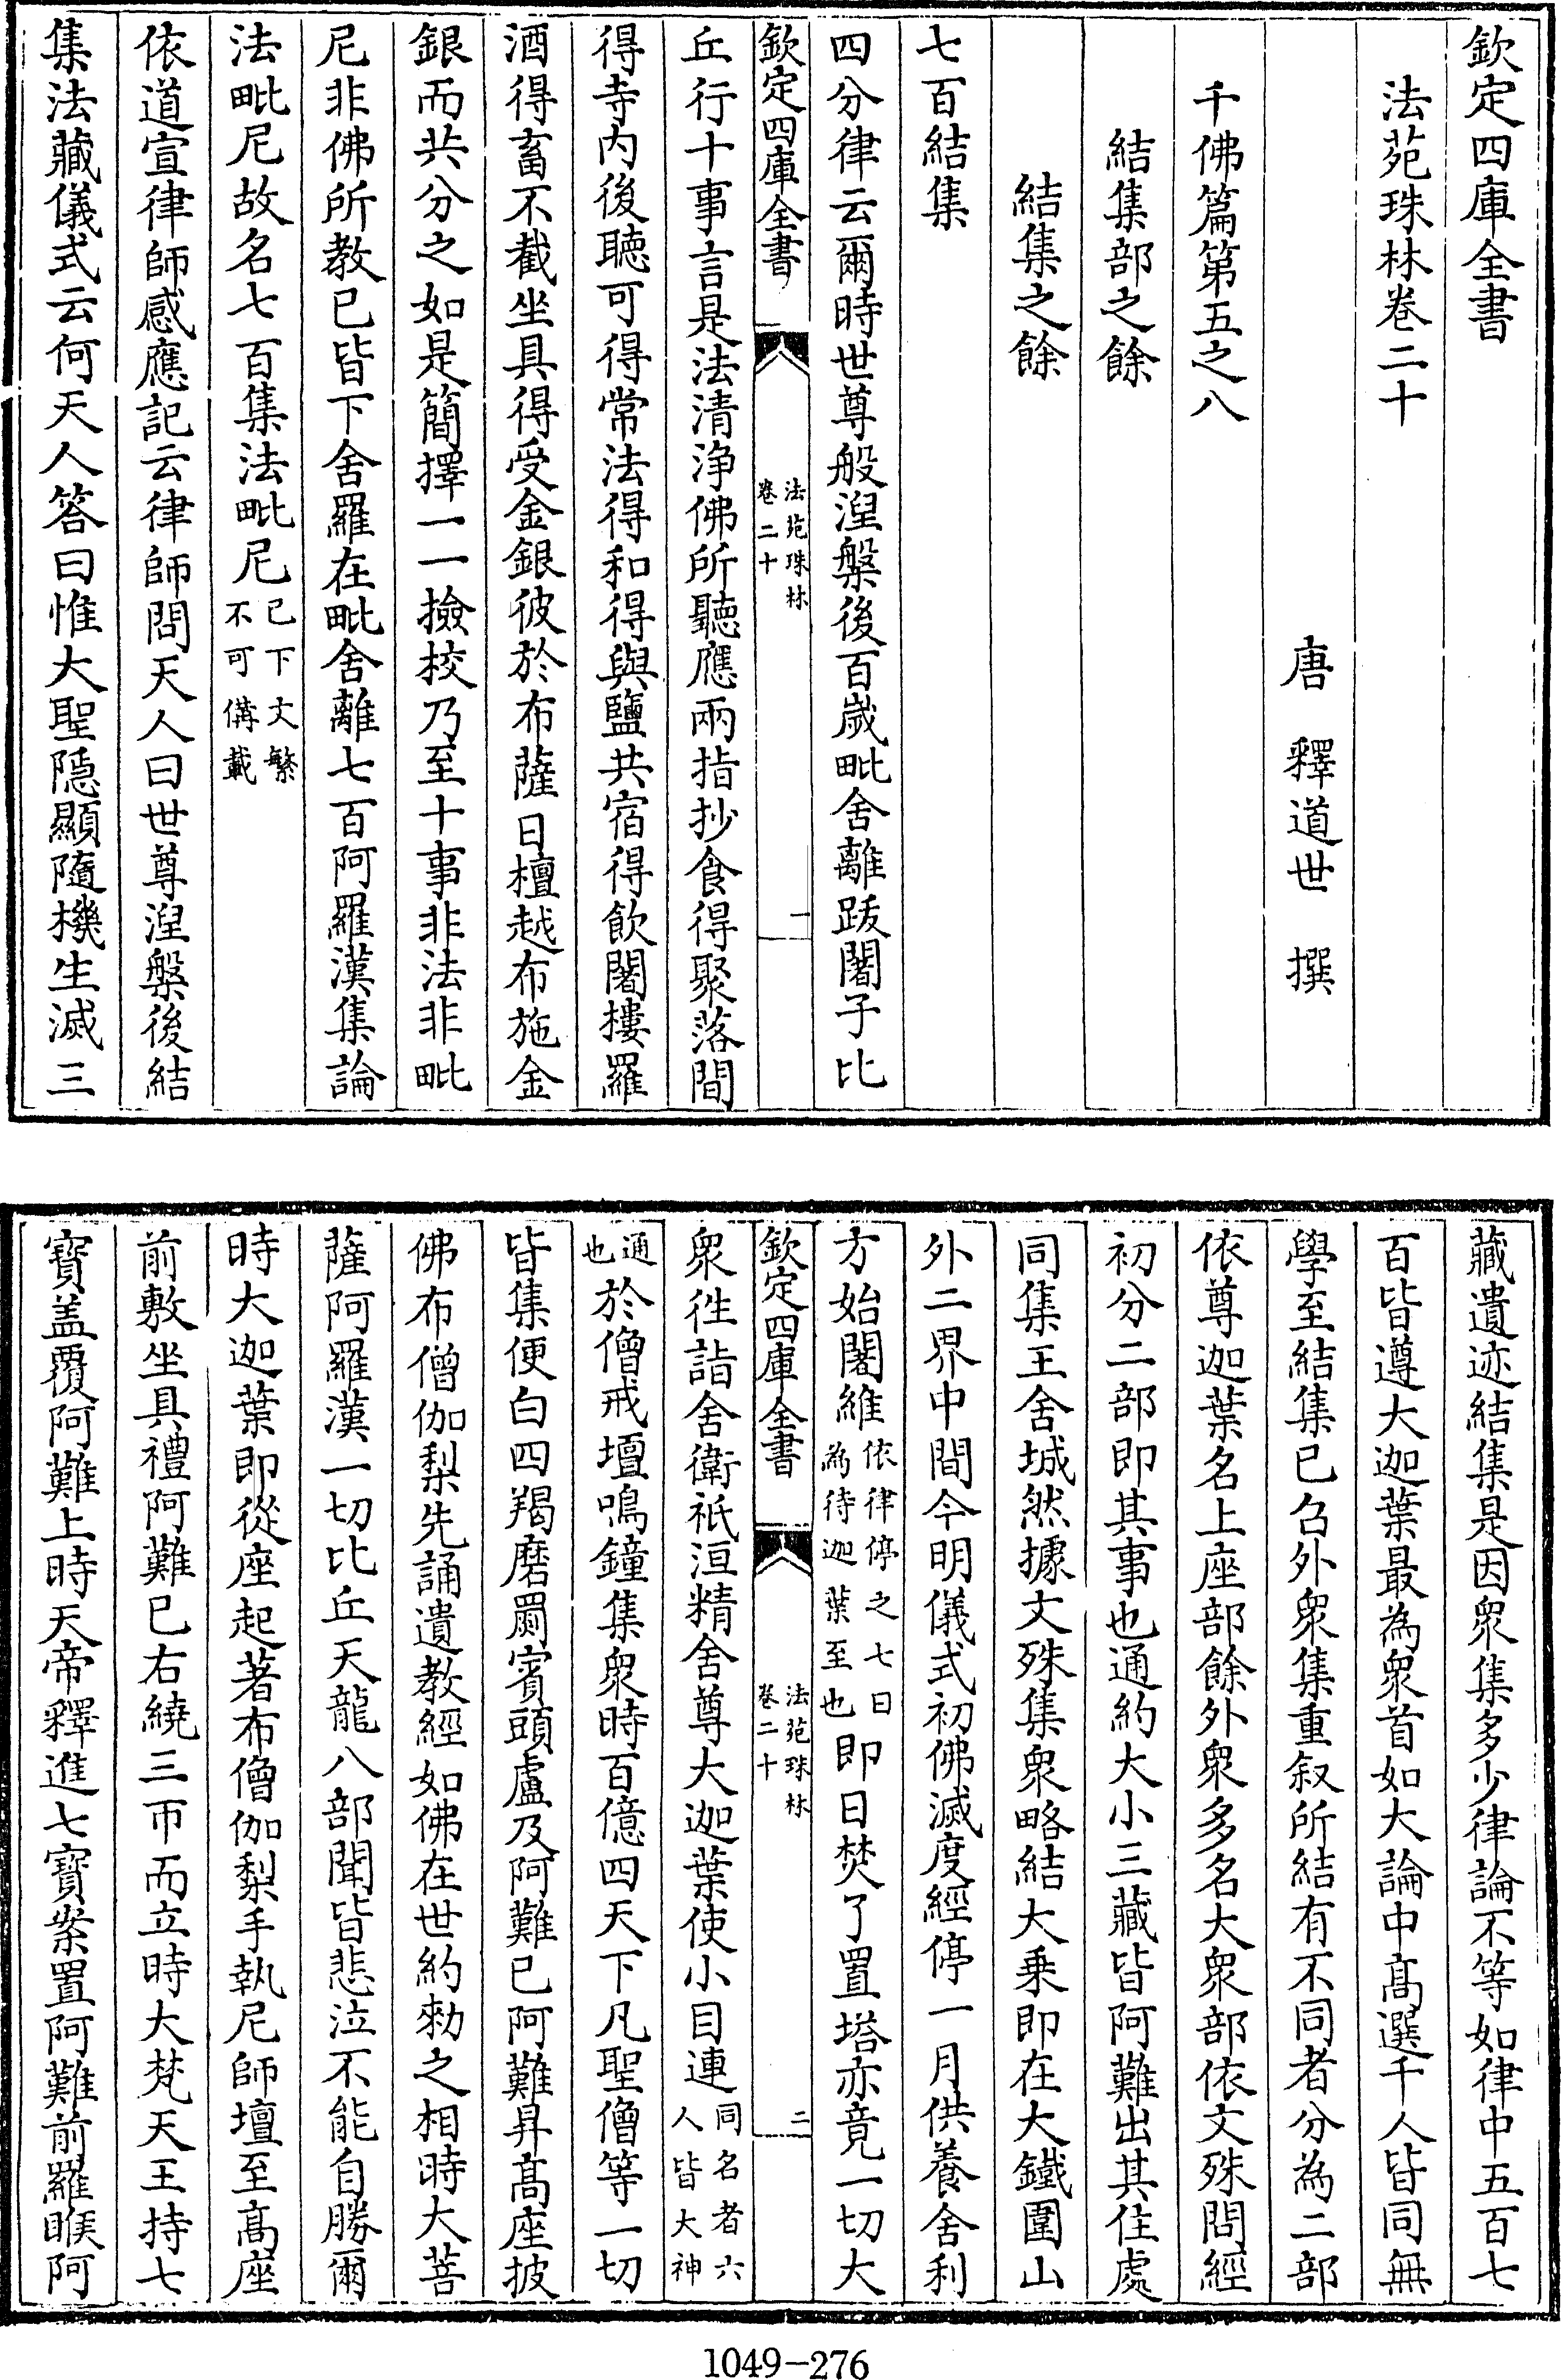 欽定四庫全書
法苑珠林卷二十
唐　釋道世　撰
千佛篇第五之八
結集部之餘
結集之餘
七百結集
四分律云爾時世尊般涅槃後百歲毗舍離跋闍子比
欽定四庫全書
法苑珠林
卷二十
一
丘行十事言是法清淨佛所聽應兩指抄食得聚落間
得寺内後聽可得常法得和得與鹽共宿得飲闍摟羅
酒得畜不截坐具得受金銀彼於布薩日檀越布施金
銀而共分之如是簡擇一一撿校乃至十事非法非毗
尼非佛所教已皆下舍羅在毗舍離七百阿羅漢集論
法毗尼故名七百集法毗尼已下文繁不可備載
依道宣律師感應記云律師問天人曰世尊涅槃後結
集法藏儀式云何天人答曰惟大聖隱顯隨機生滅三
藏遺迹結集是因衆集多少律論不等如律中五百七
百皆遵大迦葉最為衆首如大論中髙選千人皆同無
學至結集已召外衆集重叙所結有不同者分為二部
依尊迦葉名上座部餘外衆多名大衆部依文殊問經
初分二部即其事也通約大小三藏皆阿難出其住處
同集王舍城然據文殊集衆略結大乗即在大鐵圍山
外二界中間今明儀式初佛滅度經停一月供養舍利
方始闍維依律停之七日為待迦葉至也即日焚了置塔亦竟一切大
欽定四庫全書
法苑珠林
卷二十
二
衆徃詣舍衛祇洹精舍尊大迦葉使小目連同名者六人皆大神
通也於僧戒壇鳴鐘集衆時百億四天下凡聖僧等一切
皆集便白四羯磨罽賓頭盧及阿難已阿難昇髙座披
佛布僧伽梨先誦遺教經如佛在世約勅之相時大菩
薩阿羅漢一切比丘天龍八部聞皆悲泣不能自勝爾
時大迦葉即從座起著布僧伽梨手執尼師壇至髙座
前敷坐具禮阿難已右繞三帀而立時大梵天王持七
寳盖覆阿難上時天帝釋進七寳案置阿難前羅睺阿
1049-276